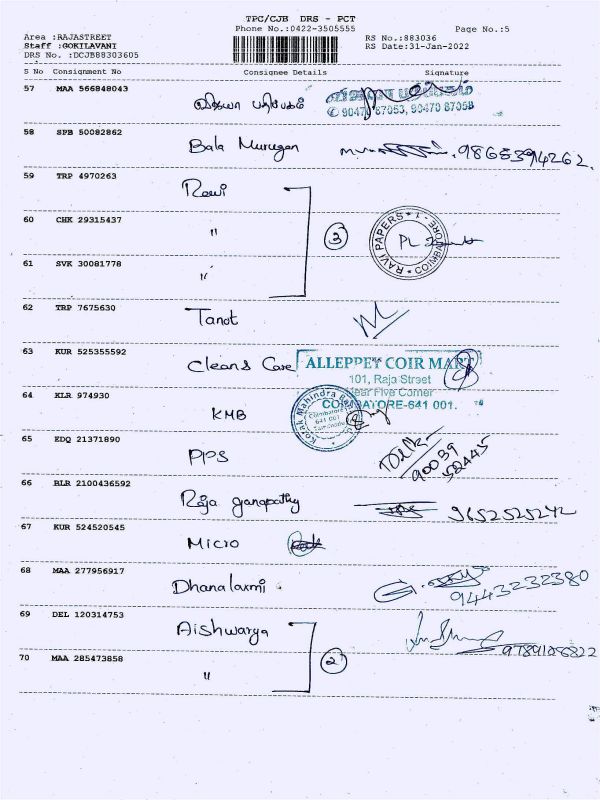 TPC/CJB DRS - PCT
Phone No.:0422-3505555 Page No.:5
Area :RAJASTREET RS No.:883036
Staff :GOKILAVANI RS Date:31-Jan-2022
DRS No. :DCJB88303605
S No Consignment No Consignee Details Signature
57 MAA 566848043
90470 87053, 90470 87058
58 SPB 50082862 Bala Murugan
59 TRP 4970263 Ravi
60 CHK 29315437 "
3
RAVI PAPERS
61 SVK 30081778 "
62 TRP 7675630 Tanot
63 KUR 525355592 Cleans Care ALLEPPEY COIR MART
101, Raja Street
Near Five Corner
COIMBATORE-641 001.
64 KLR 974930 KMB
Kotak Mahindra
Coimbatore
641 001
65 EDQ 21371890 PPS
90039
52445
66 BLR 2100436592 Raja ganapathy 9652525242
67 KUR 524520545 Micro
68 MAA 277956917 Dhanalaxmi 9443232380
69 DEL 120314753 Aishwarya
2
70 MAA 285473858 "